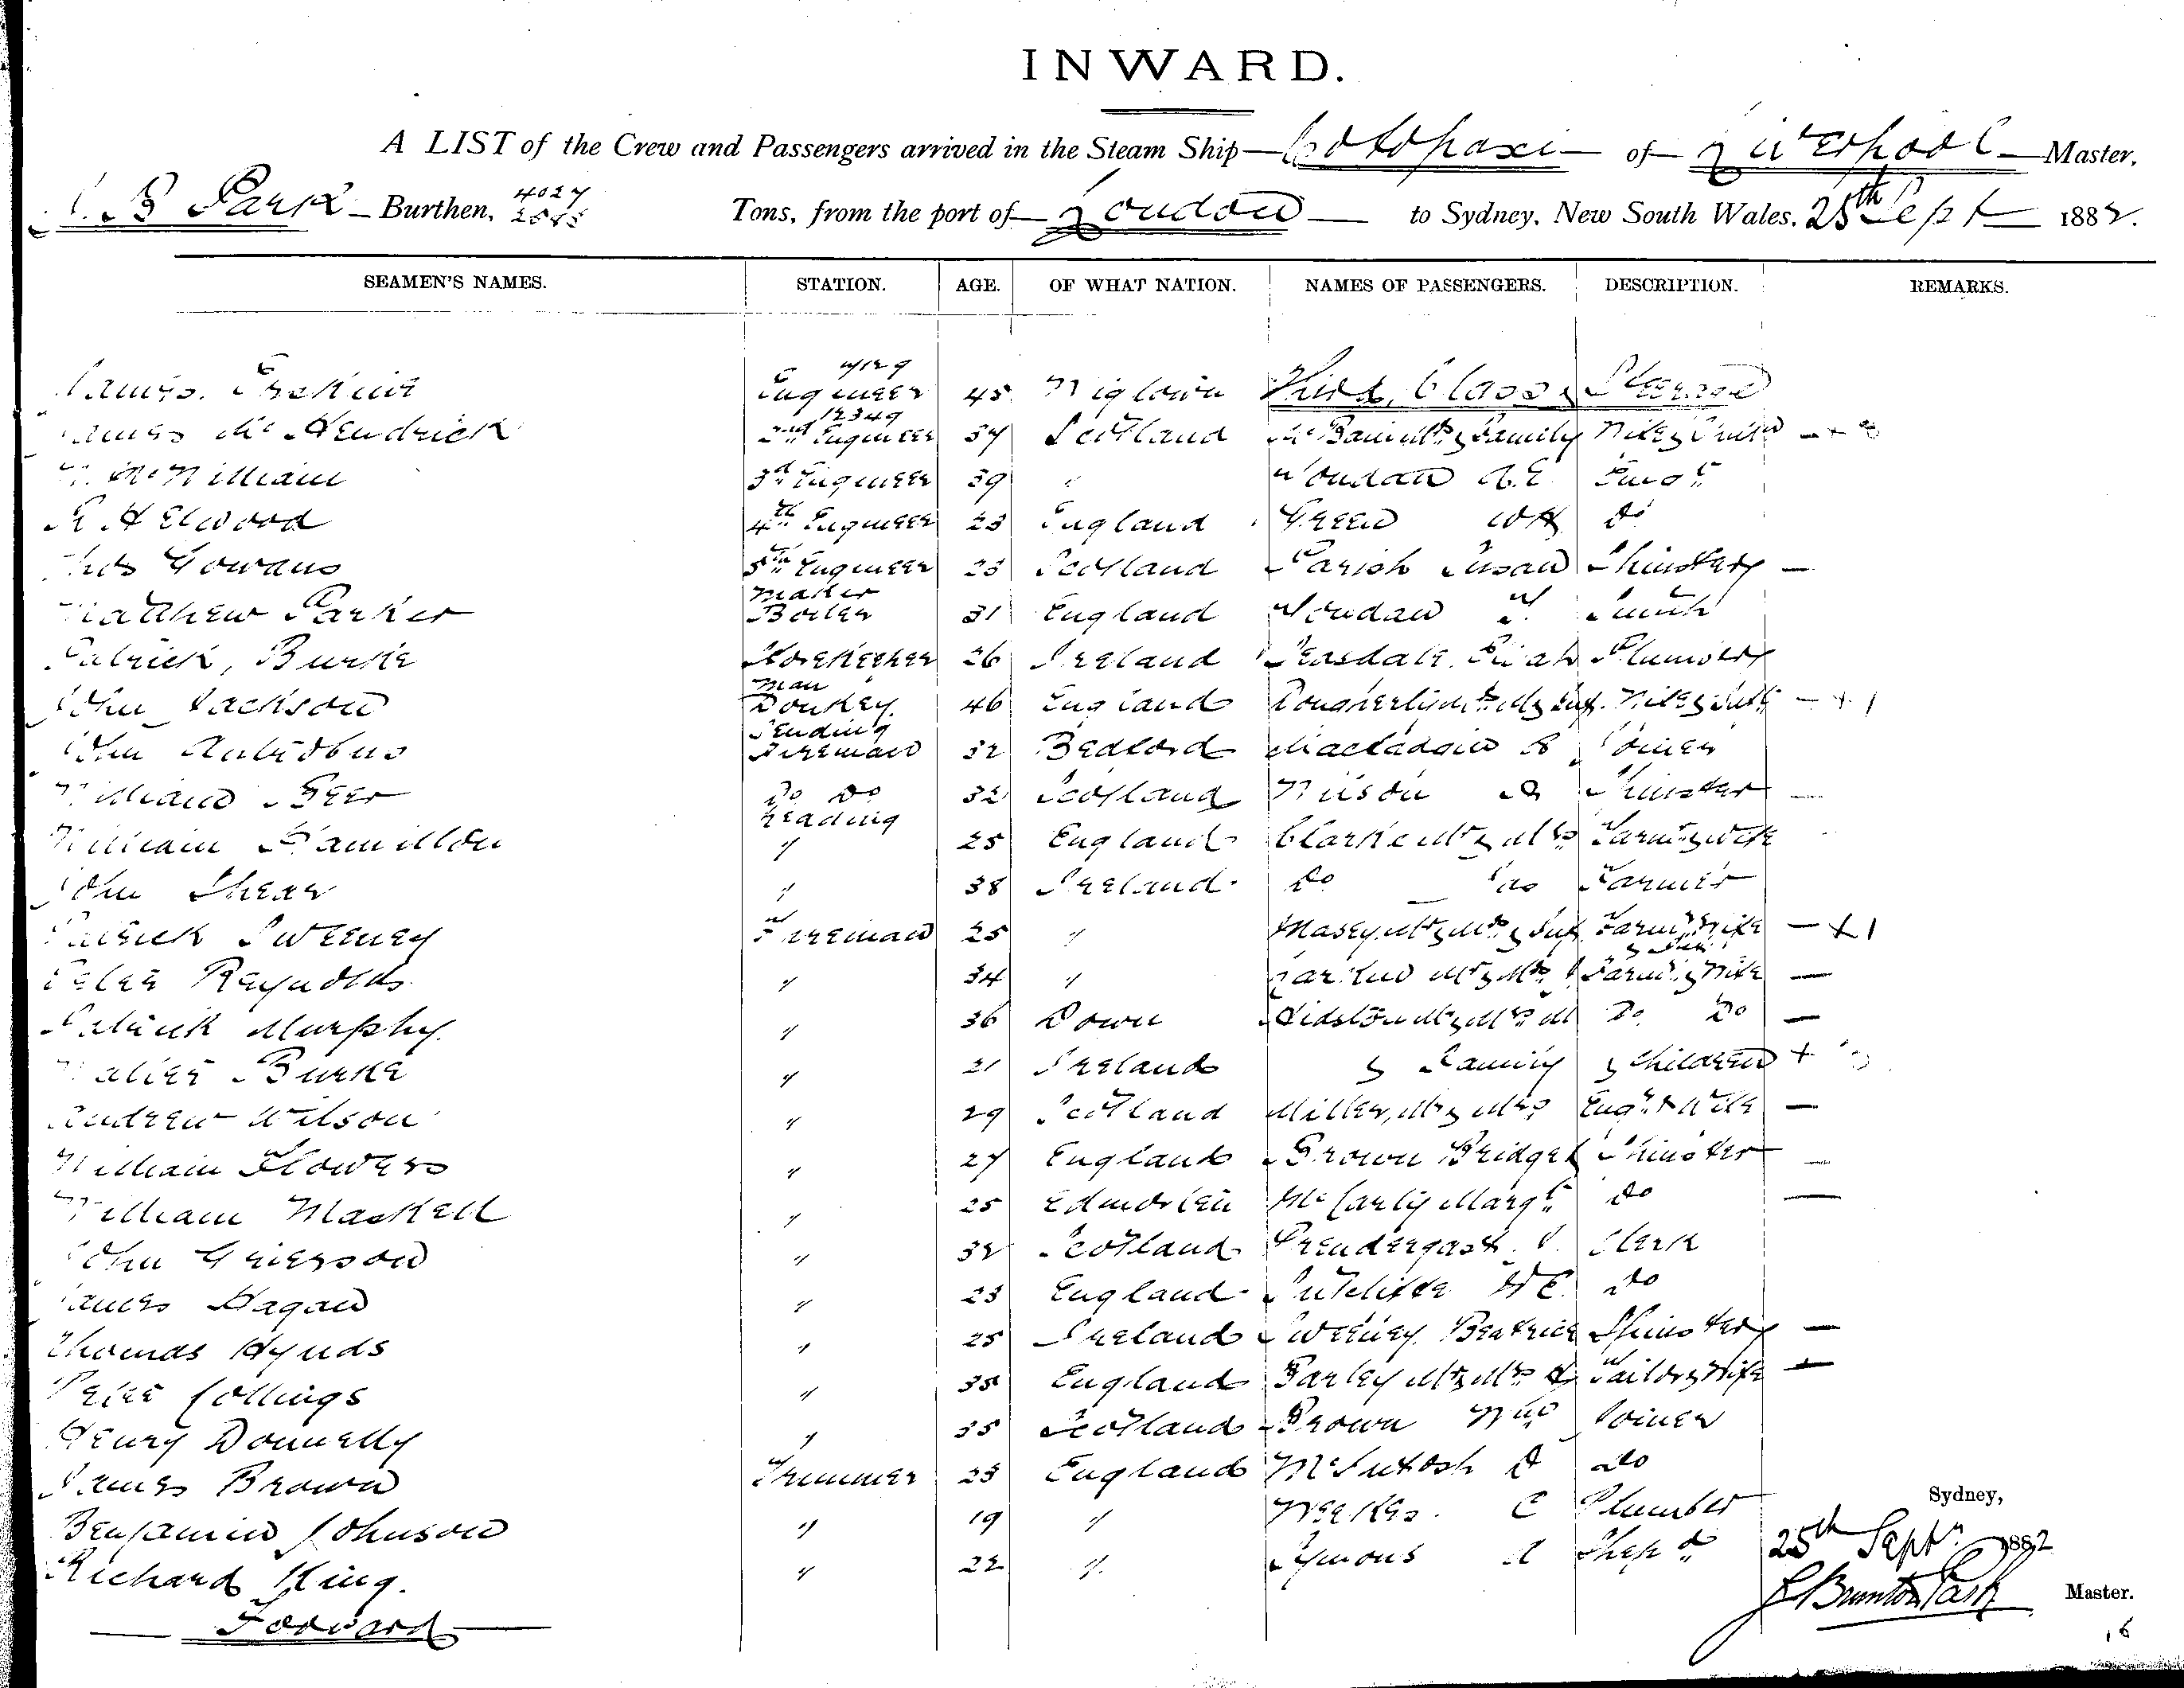 INWARD.
A LIST of the Crew and Passengers arrived in the Steam Ship Cotopaxi of Liverpool Master,
Park Burthen, 4027 Tons, from the port of London to Sydney, New South Wales. 25th Sept 1882.
SEAMEN'S NAMES. STATION. AGE. OF WHAT NATION. NAMES OF PASSENGERS. DESCRIPTION. REMARKS.
James Erskine Engineer 45 Wigtown Third Class Steerage
James McKendrick 2nd Engineer 37 Scotland & Family Wife &
McWilliam 3rd Engineer 39 "
Elwood 4th Engineer 23 England Green WH Do
Gowans 5th Engineer 23 Scotland Parish Susan Spinster —
Matthew Parker Boiler Maker 31 England Smith
Patrick, Burke Storekeeper 26 Ireland Plumber
John Jackson Donkey man 46 England Wife &
John Antrobus Fireman 32 Bedford Joiner
William Do Do 32 Scotland Wilson Spinster —
William Hamilton Leading " 25 England Clarke Mr & Mrs Farmr & wife
John Shear " 38 Ireland Do Do Farmer
Patrick Sweeney Fireman 25 " Masey Mr & Mrs & Inf Farmr Wife — + 1
Peter Reynolds " 34 " Mr & Mrs Farmr & Wife —
Patrick Murphy " 36 Down Mr & Mrs M Do Do —
Walter Burke " 21 Ireland & Family & Children +
Andrew Wilson " 29 Scotland Miller, Mr & Mrs Engr & Wife —
William Flowers " 27 England Brown Bridget Spinster —
William Maskell " 25 McCarty Margt Do —
John Grierson " 32 Scotland Prendergast J. Clerk
James Hagan " 23 England Sutcliffe HE Do
Thomas Hynds " 25 Ireland Sweeney Beatrice Spinster —
Peter Collings " 35 England Farley Mr & Mrs Tailor & Wife —
Henry Donnelly " 35 Scotland Brown Wm Joiner
James Brown Trimmer 23 England McIntosh D Do
Benjamin Johnson " 19 " Weekes. C Plumber
Richard King. " 22 " Symons A
Forward
Sydney,
25th Septr 1882
J Brunton Park Master.
16